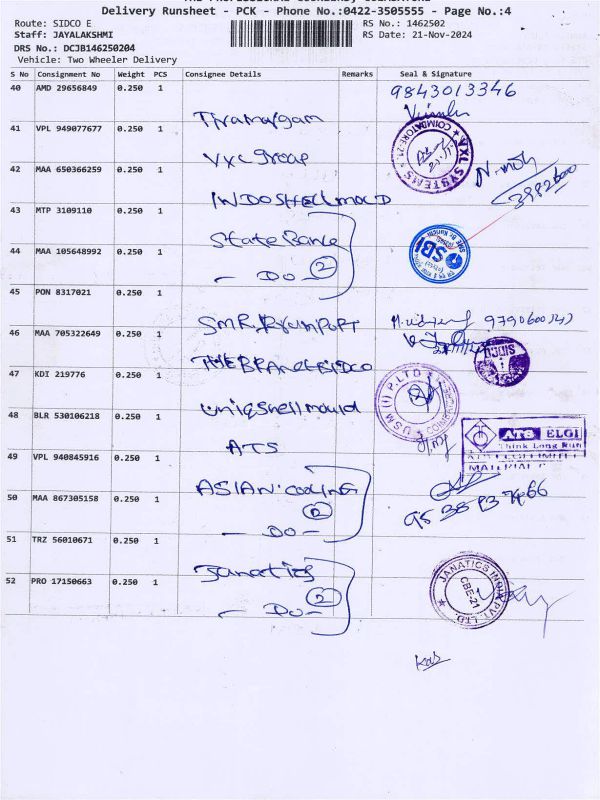 Delivery Runsheet - PCK - Phone No.:0422-3505555 - Page No.:4
Route: SIDCO E
RS No.: 1462502
Staff: JAYALAKSHMI
RS Date: 21-Nov-2024
DRS No.: DCJB146250204
Vehicle: Two Wheeler Delivery
S No Consignment No Weight PCS Consignee Details Remarks Seal & Signature
40 AMD 29656849 0.250 1
9843013346
41 VPL 949077677 0.250 1 VXL Group
VXL SYSTEMS COIMBATORE-21
42 MAA 650366259 0.250 1 INDOSHELL MOULD
43 MTP 3109110 0.250 1 State Bank
SBI
44 MAA 105648992 0.250 1 - Do - 2
45 PON 8317021 0.250 1
46 MAA 705322649 0.250 1
SIDCO
47 KDI 219776 0.250 1 Uniqshell mould
U S M (I) P.LTD
48 BLR 530106218 0.250 1 ATS
ATS ELGI
Think Long Run
ATS ELGI LIMITED
MATERIAL
49 VPL 940845916 0.250 1 ASIAN Cooling
50 MAA 867305158 0.250 1 - Do - 2
51 TRZ 56010671 0.250 1 Janatics
52 PRO 17150663 0.250 1 - Do - 2
JANATICS INDIA PVT LTD
CBE-21